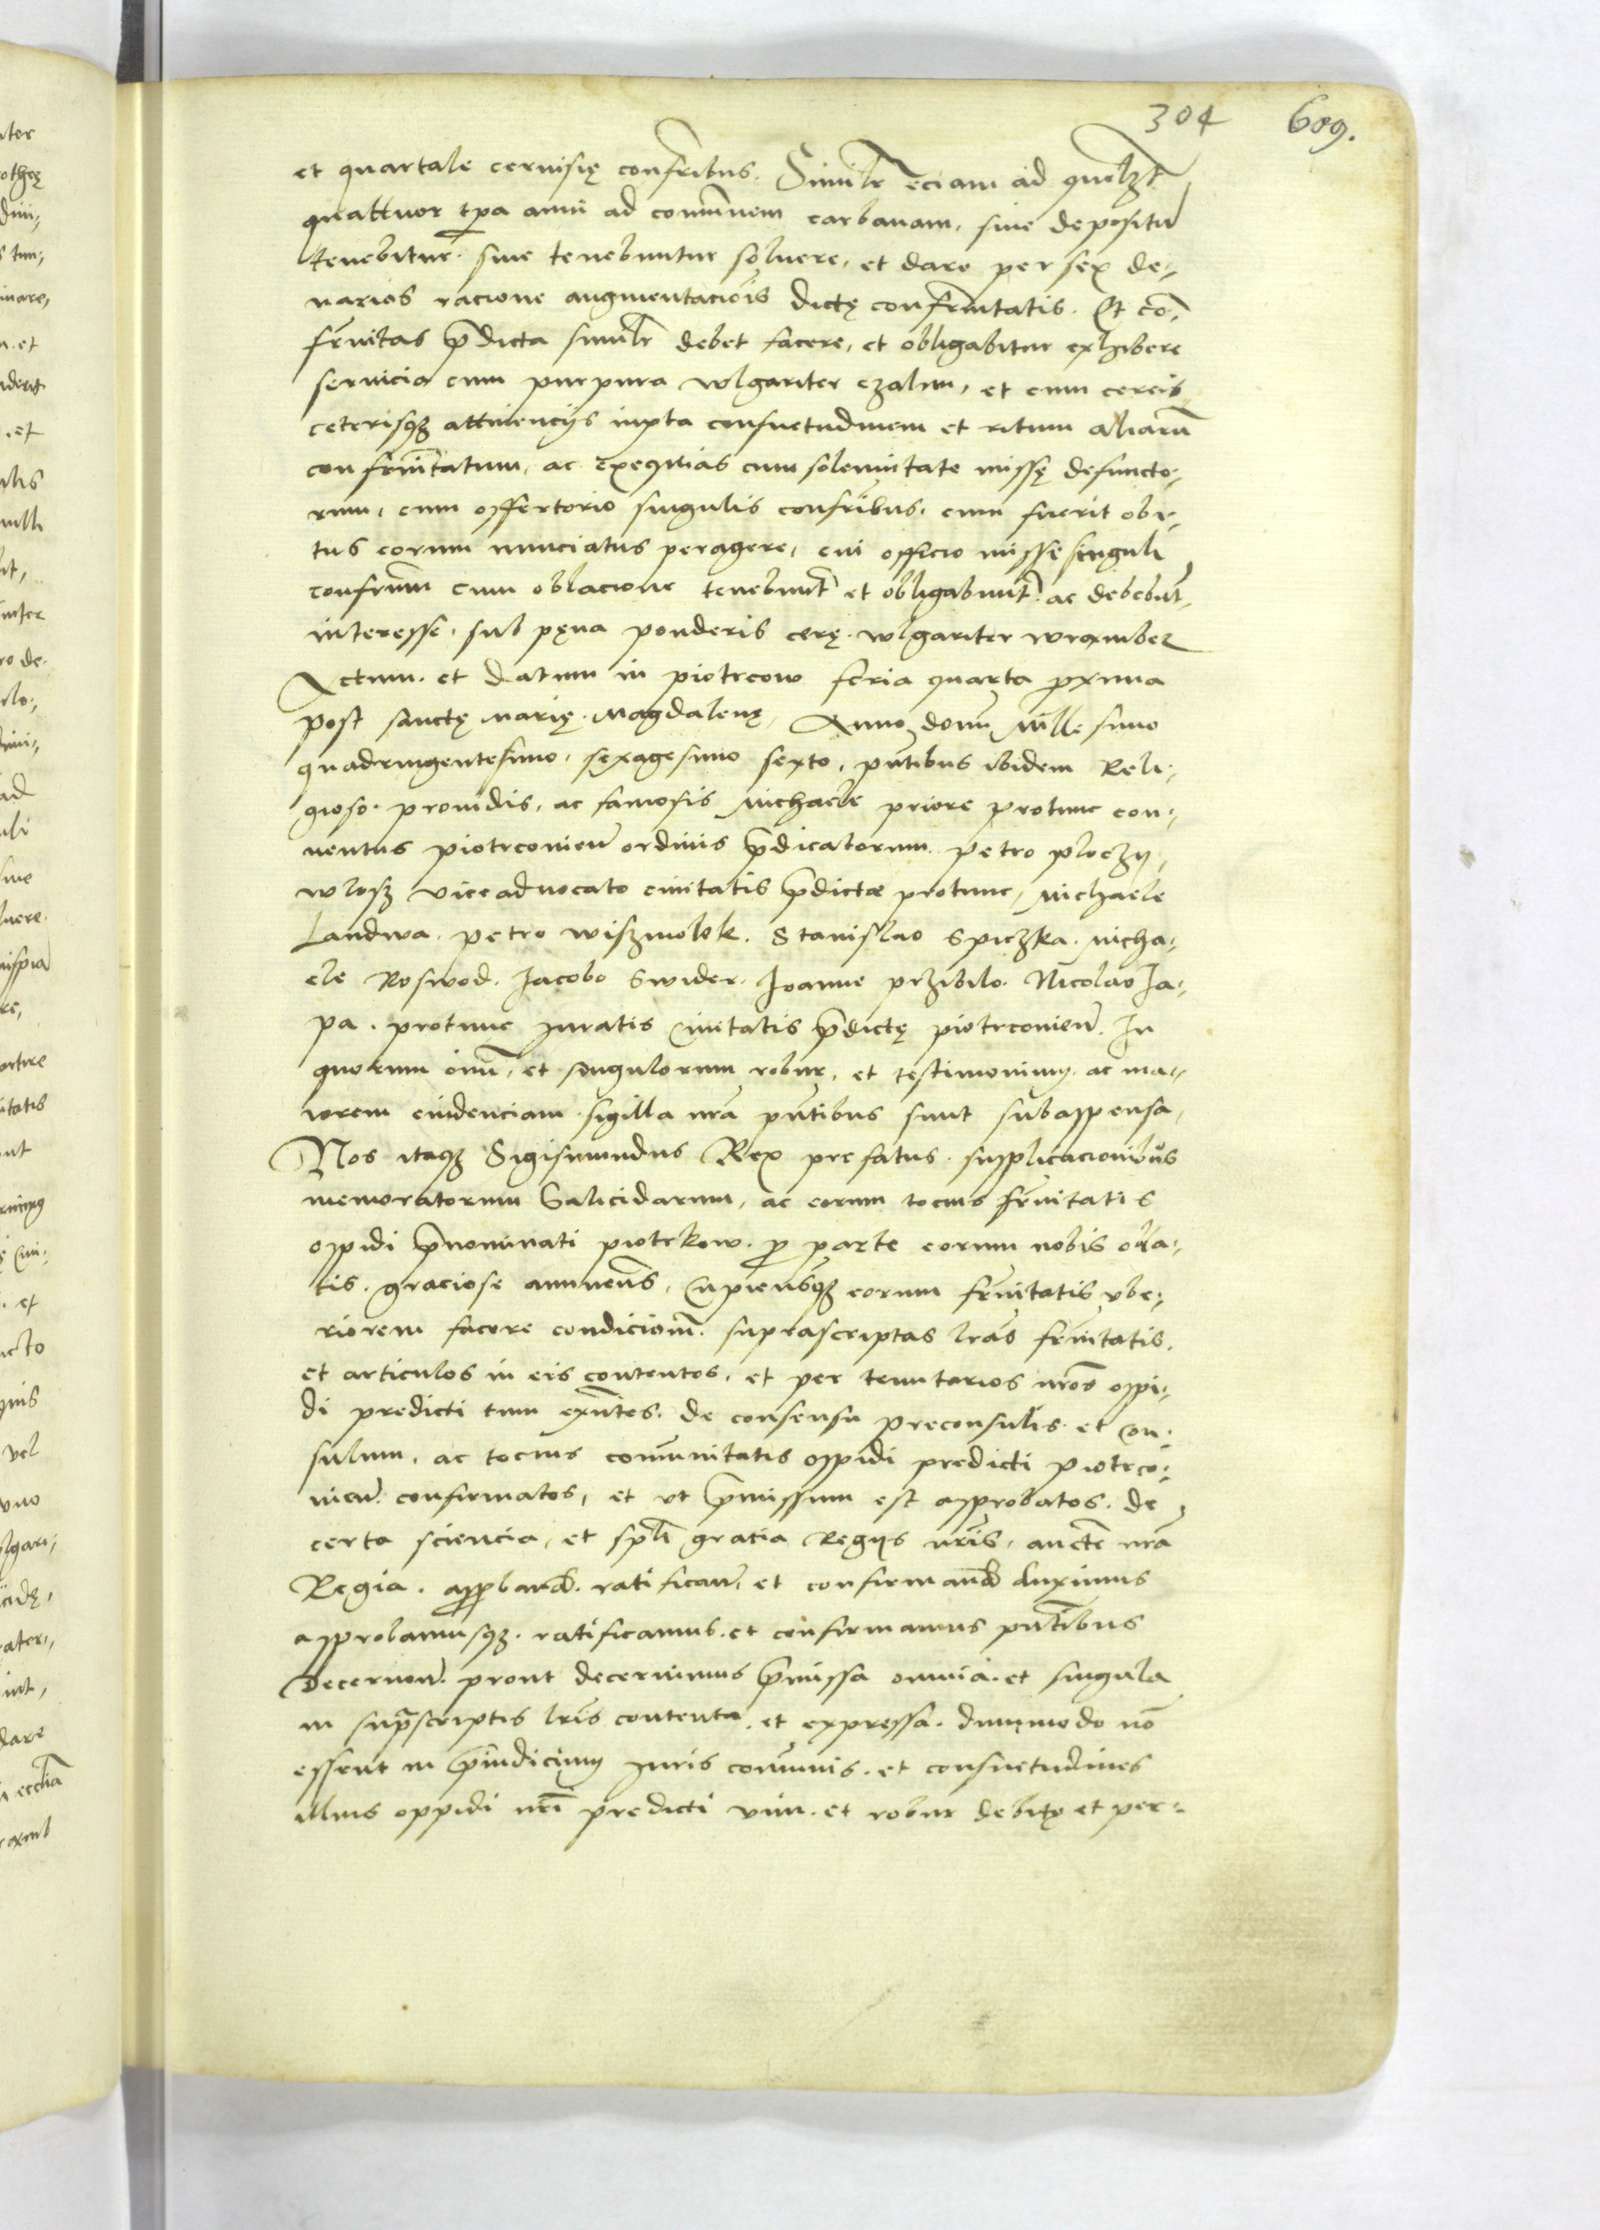 304 609.
et quartale ceruisię confribus. Similr eciam ad quelzt
quattuor tpa anni ad comunem carbanam, siue depositu
tenebitur siue tenebuntur soluere, et dare per sex de,
narios racione augmentaciois dictę confrnitatis. Et co,
frnitas pdicta similr debet facere, et obligabitur exhibere
seruicia cum purpura wlgariter czalun, et cum cereis
ceterisqz attinencijs iuxta consuetudinem et ritum aliaru
confrnitatum, ac exequias cum solemnitate missę defuncto,
rum, cum offertorio singulis confribus, cum fuerit obi,
tus eorum nunciatus peragere, cui officio missę singuli
confrum cum oblacione tenebunt et obligabunt ac debebut
interesse, sub pęna ponderis cerę wlgariter
Actum et datum in piotrcow feria quarta pxima
post sanctę marię Magdalenę, Anno domi Millesimo
quadringentesimo, sexagesimo sexto, pntibus ibidem Reli,
gioso prouidis, ac famosis Michaele priore protunc con,
uentus piotrconien ordinis pdicatorum petro ploczy,
wlosz viceaduocato ciuitatis pdictæ protunc, Michaele
Landwa, petro wiszmolek. Stanislao Spiczka. Micha,
ele Roswod. Jacobo Swider. Joanne przibilo. Nicolao Ja,
pa. protunc Juratis Ciuitatis pdictę piotrconien. In
quorum oim, et singulorum robur, et testimonium ac ma,
iorem euidenciam sigilla nra pntibus sunt subappensa.
Nos itaqz Sigismundus Rex prefatus supplicacionibus
memoratorum Salicidarum, ac eorum tocius frnitatis
oppidi pnominati piotrkow. p parte eorum nobis obla,
tis. graciose annuens, Cupiensqz eorum frnitatis vbe,
riorem facere condiciom. suprascriptas lras frnitatis.
et articulos in eis contentos, et per tenutarios nros oppi,
di predicti tum exntes. de consensu preconsulis et Con,
sulum, ac tocius comunitatis oppidi predicti piotrco,
nien confirmatos, et vt pmissum est approbatos. de
certa sciencia, et spli gratia Regijs nris, aucte nra
Regia. appband. ratifican, et confirmand duximus
approbamusqz. ratificamus et confirmamus pntibus
Decernen. prout decernimus pmissa omnia et singula
in supscriptis lris contenta et expressa. dummodo no
essent in piudicium Juris comunis et consuetudines
illius oppidi nri predicti vim et robur debitę et per,